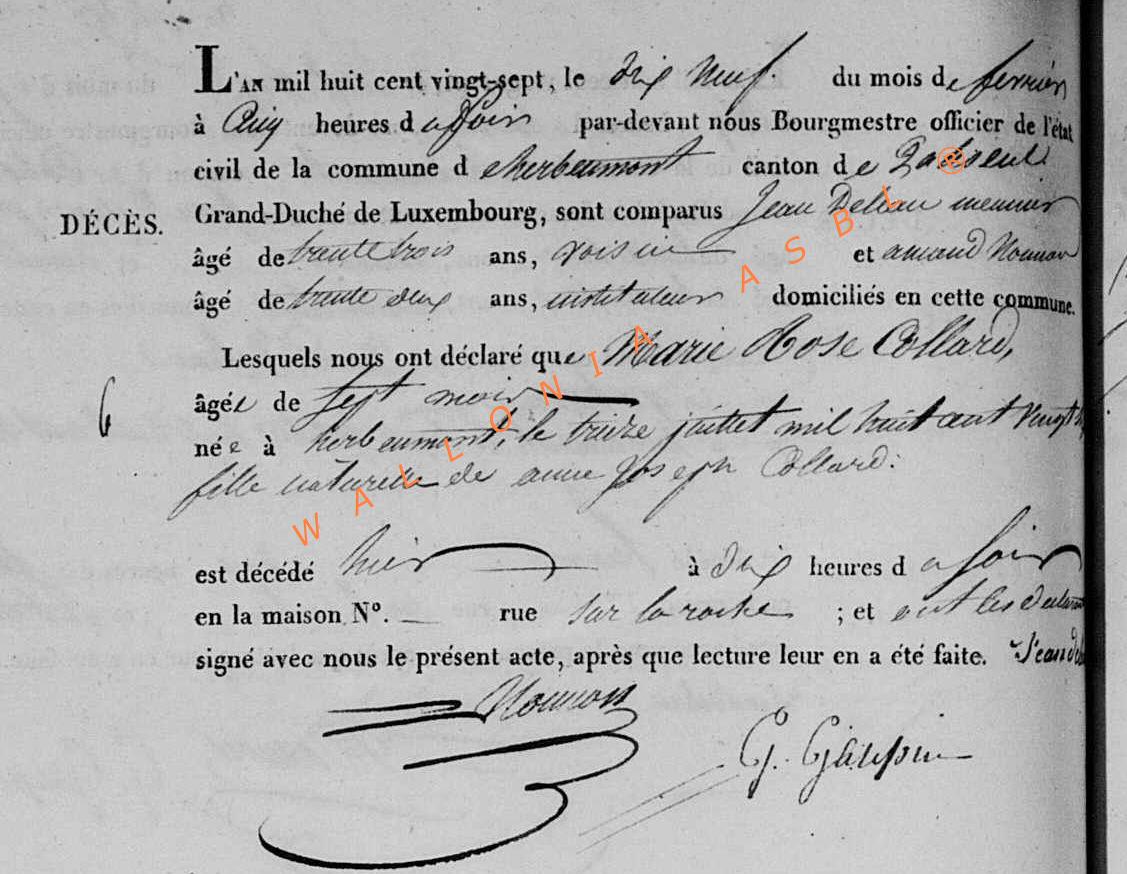 L'AN mil huit cent vingt-sept, le dix neuf du mois de fevrier
à heures du soir par-devant nous Bourgmestre officier de l'état
civil de la commune d'herbeumont canton de
Grand-Duché de Luxembourg, sont comparus Jean meunier
DÉCÈS.
âgé de trente trois ans, voisin et amand
âgé de trente deux ans, instituteur domiciliés en cette commune.
Lesquels nous ont déclaré que Marie Rose Collard,
6
âgée de sept mois
née à herbeumont, le treize juillet mil huit cent vingt
fille naturelle de anne Joseph Collard.
est décédé hier à dix heures du soir
en la maison N°. — rue sur la roche ; et ont les
signé avec nous le présent acte, après que lecture leur en a été faite. Jean
WALLONIA ASBL ®